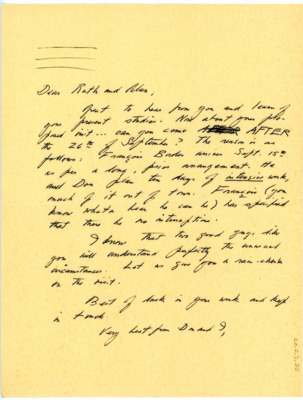 Dear Ruth and Alan,
Great to hear from you and learn of
your present studies. Now about your pro-
posed visit... can you come AFTER
the 26th of September? The reason is as
follows: François Bucher arrives Sept. 15th
as per a long, prior arrangement. He
and Don plan ten days of intensive work,
much of it out of town. François (you
know what a bear he can be) has specified
that there be no interruptions.
I know that two good guys like
you will understand perfectly the unusual
circumstances. Let us give you a rain-check
on the visit.
Best of luck in your work and keep
in touch.
Very best from Don and I,